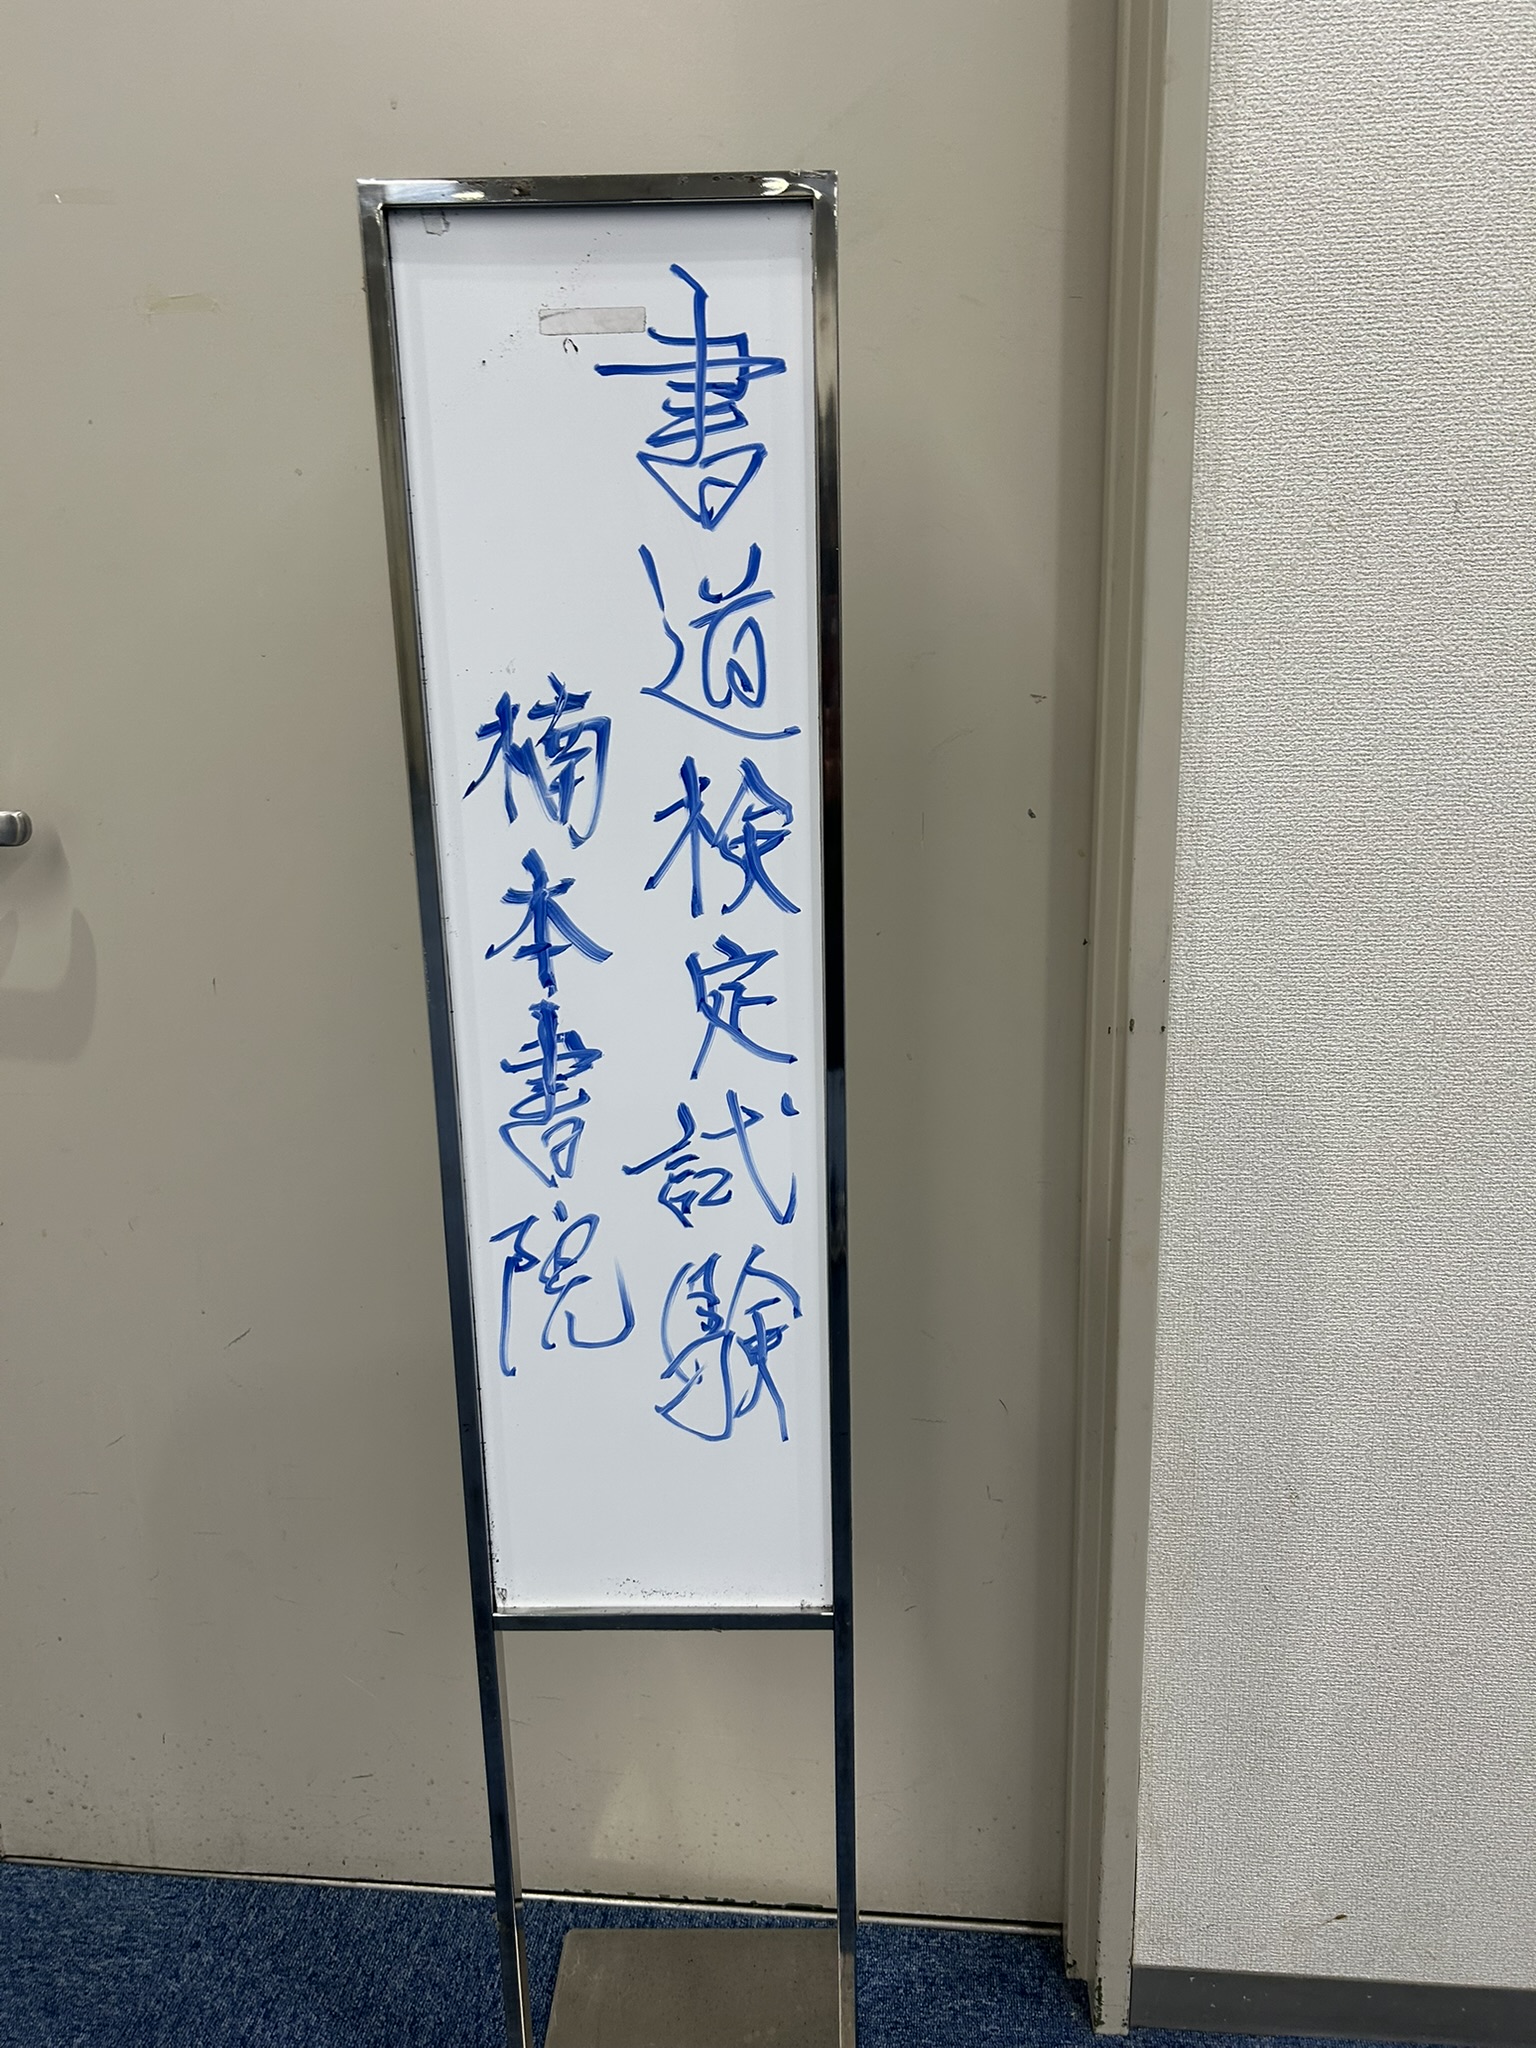 書道検定試験
楠本書院